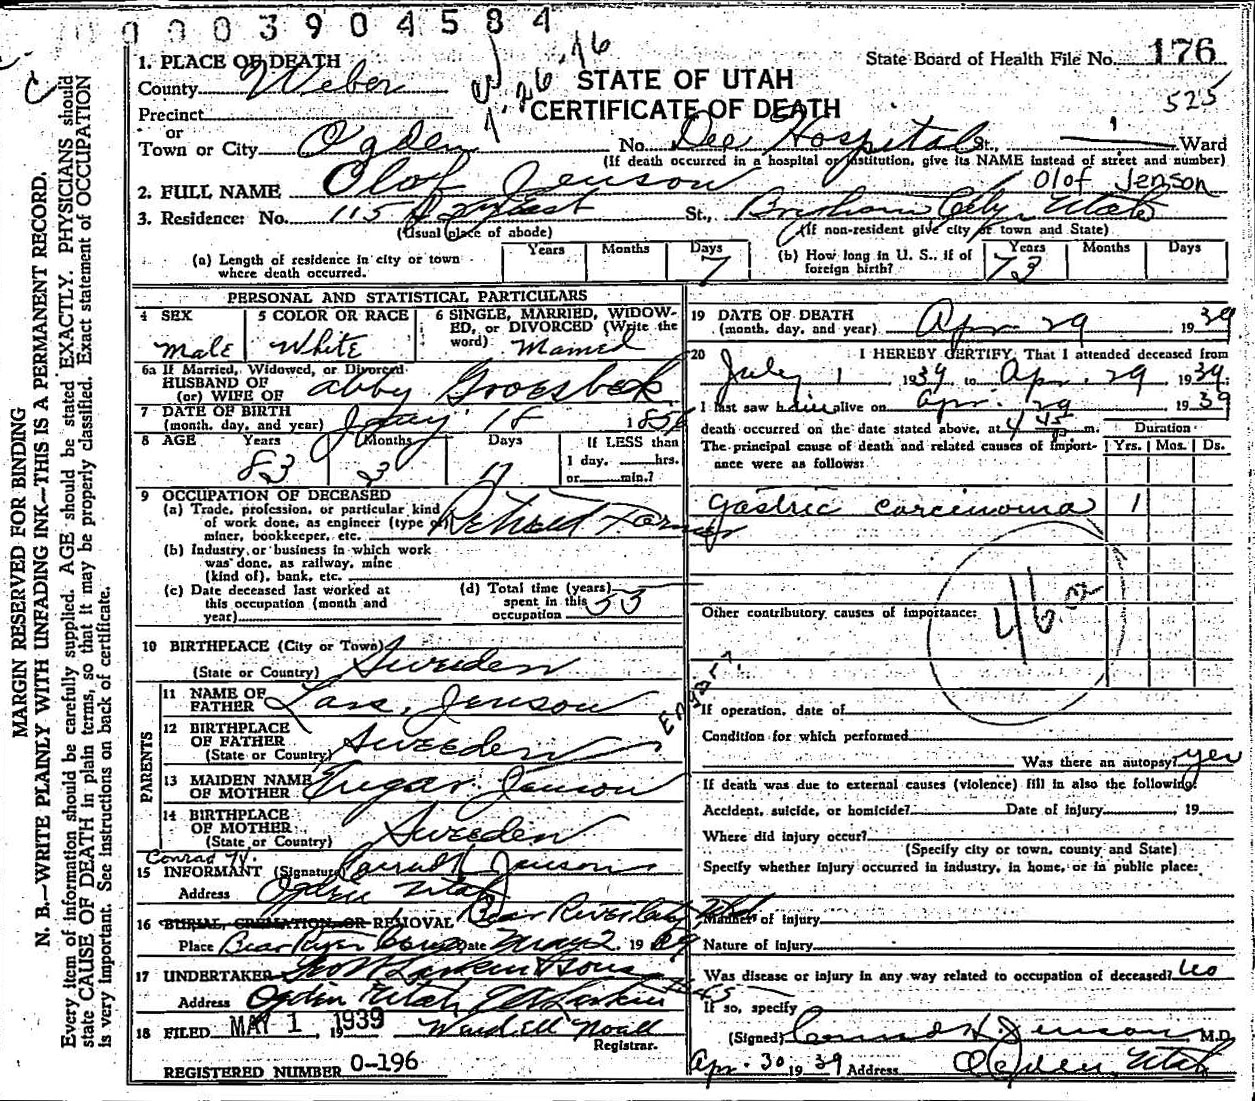 0003904584
1. PLACE OF DEATH
County Weber
STATE OF UTAH
CERTIFICATE OF DEATH
State Board of Health File No. 176
525
Precinct
or
Town or City Ogden No. Dee Hospital St., 1 Ward
(If death occurred in a hospital or institution, give its NAME instead of street and number)
2. FULL NAME Olof Jenson Olof Jenson
3. Residence: No. 115 St., Brigham City, Utah
(Usual place of abode) (If non-resident give city or town and State)
(a) Length of residence in city or town where death occurred. Years Months Days 7
(b) How long in U. S., if of foreign birth? Years 73 Months Days
PERSONAL AND STATISTICAL PARTICULARS
4 SEX Male
5 COLOR OR RACE White
6 SINGLE, MARRIED, WIDOWED, or DIVORCED (Write the word) Married
6a If Married, Widowed, or Divorced
HUSBAND OF
(or) WIFE OF Abby Groesbeck
7 DATE OF BIRTH
(month, day, and year) 18 1856
8 AGE Years 83 Months 3 Days 11 If LESS than 1 day, hrs. or min.?
9 OCCUPATION OF DECEASED
(a) Trade, profession, or particular kind of work done, as engineer (type of) miner, bookkeeper, etc. Retired Farmer
(b) Industry or business in which work was done, as railway, mine (kind of), bank, etc.
(c) Date deceased last worked at this occupation (month and year)
(d) Total time (years) spent in this occupation 53
10 BIRTHPLACE (City or Town)
(State or Country) Sweeden
PARENTS
11 NAME OF FATHER Lars Jenson
12 BIRTHPLACE OF FATHER
(State or Country) Sweeden
13 MAIDEN NAME OF MOTHER Jenson
14 BIRTHPLACE OF MOTHER
(State or Country) Sweeden
15 INFORMANT (Signature) Jenson
Address Ogden Utah
16 BURIAL, CREMATION, OR REMOVAL Bear River City Utah
Place Bear River Date May 2, 19
17 UNDERTAKER Larkin & Sons
Address Ogden Utah
18 FILED MAY 1, 1939 Wendell Noall
Registrar.
REGISTERED NUMBER 0-196
19 DATE OF DEATH
(month, day, and year) Apr 29 1939
20 I HEREBY CERTIFY, That I attended deceased from
July 1 1939 to Apr. 29, 1939
I last saw him alive on Apr. 29 1939
death occurred on the date stated above, at 4 45 p.m. Duration
The principal cause of death and related causes of importance were as follows: Yrs. Mos. Ds.
Gastric carcinoma 1
46
Other contributory causes of importance:
If operation, date of
Condition for which performed
Was there an autopsy? yes
If death was due to external causes (violence) fill in also the following:
Accident, suicide, or homicide? Date of injury , 19
Where did injury occur?
(Specify city or town, county and State)
Specify whether injury occurred in industry, in home, or in public place:
Manner of injury
Nature of injury
Was disease or injury in any way related to occupation of deceased? no
If so, specify
(Signed) Conrad H. Jenson M.D.
Apr. 30 1939 Address Ogden, Utah
MARGIN RESERVED FOR BINDING
N. B.—WRITE PLAINLY WITH UNFADING INK—THIS IS A PERMANENT RECORD.
Every item of information should be carefully supplied. AGE should be stated EXACTLY. PHYSICIANS should
state CAUSE OF DEATH in plain terms, so that it may be properly classified. Exact statement of OCCUPATION
is very important. See instructions on back of certificate.